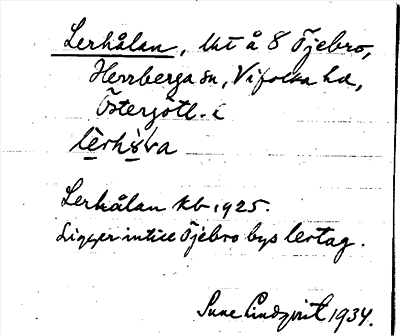 Lerhålan, Lht å 8 Öjebro,
Herrberga sn, Vifolka hd,
Östergötl. l
Lerhålan kb 1925.
Ligger intill Öjebro bys lertag.
Sune Lindqvist 1934.